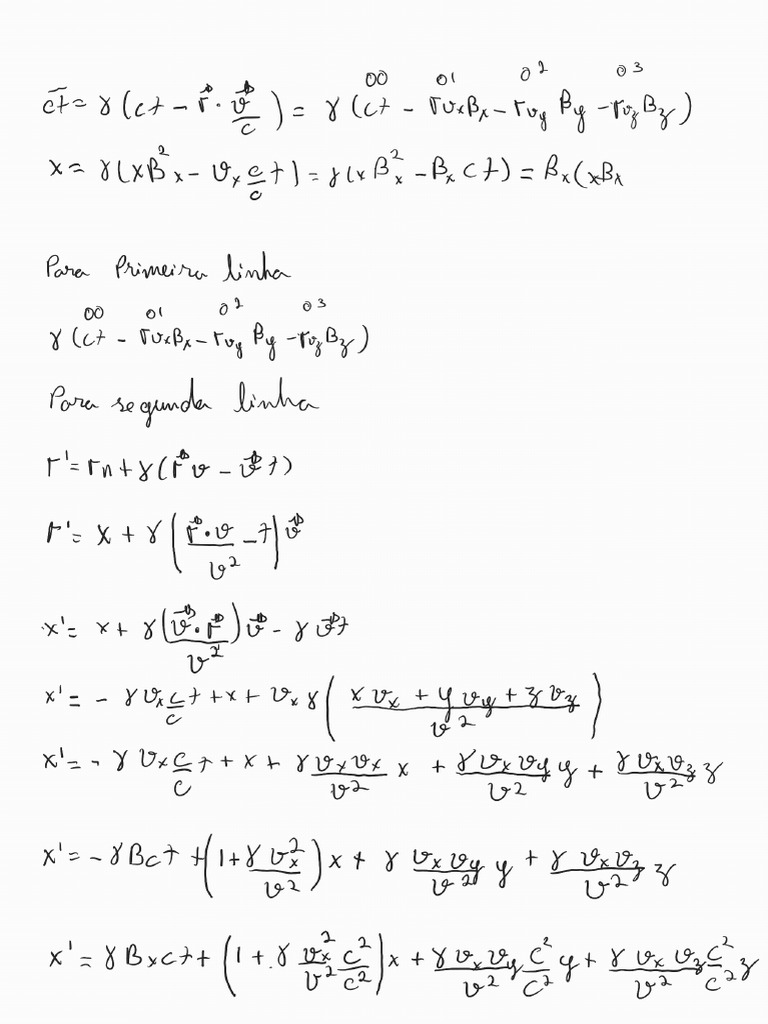 00 01 02 03
c̄t = γ(ct - r⃗·v⃗/c) = γ(ct - rvxβx - rvy βy - rvzβz)
x = γ(xβ²x - vx c/c t) = γ(xβ²x - βx ct) = βx(xβx
Para Primeira linha
00 01 02 03
γ(ct - rvxβx - rvy βy - rvzβz)
Para segunda linha
r' = rn + γ(r⃗v - v⃗t)
r' = x + γ(r⃗·v/v² - t)v⃗
x' = x + γ(v⃗·r⃗/v²)v⃗ - γv⃗t
x' = - γvx c/c t + x + vxγ(xvx + yvy + zvz/v²)
x' = - γvx c/c t + x + γvxvx/v² x + γvxvy/v² y + γvxvz/v² z
x' = - γBct + (1 + γv²x/v²)x + γ vxvy/v² y + γ vxvz/v² z
x' = γBxct + (1 + γ v²x/v² c²/c²)x + γvxvy/v² c²/c² y + γ vxvz/v² c²/c² z